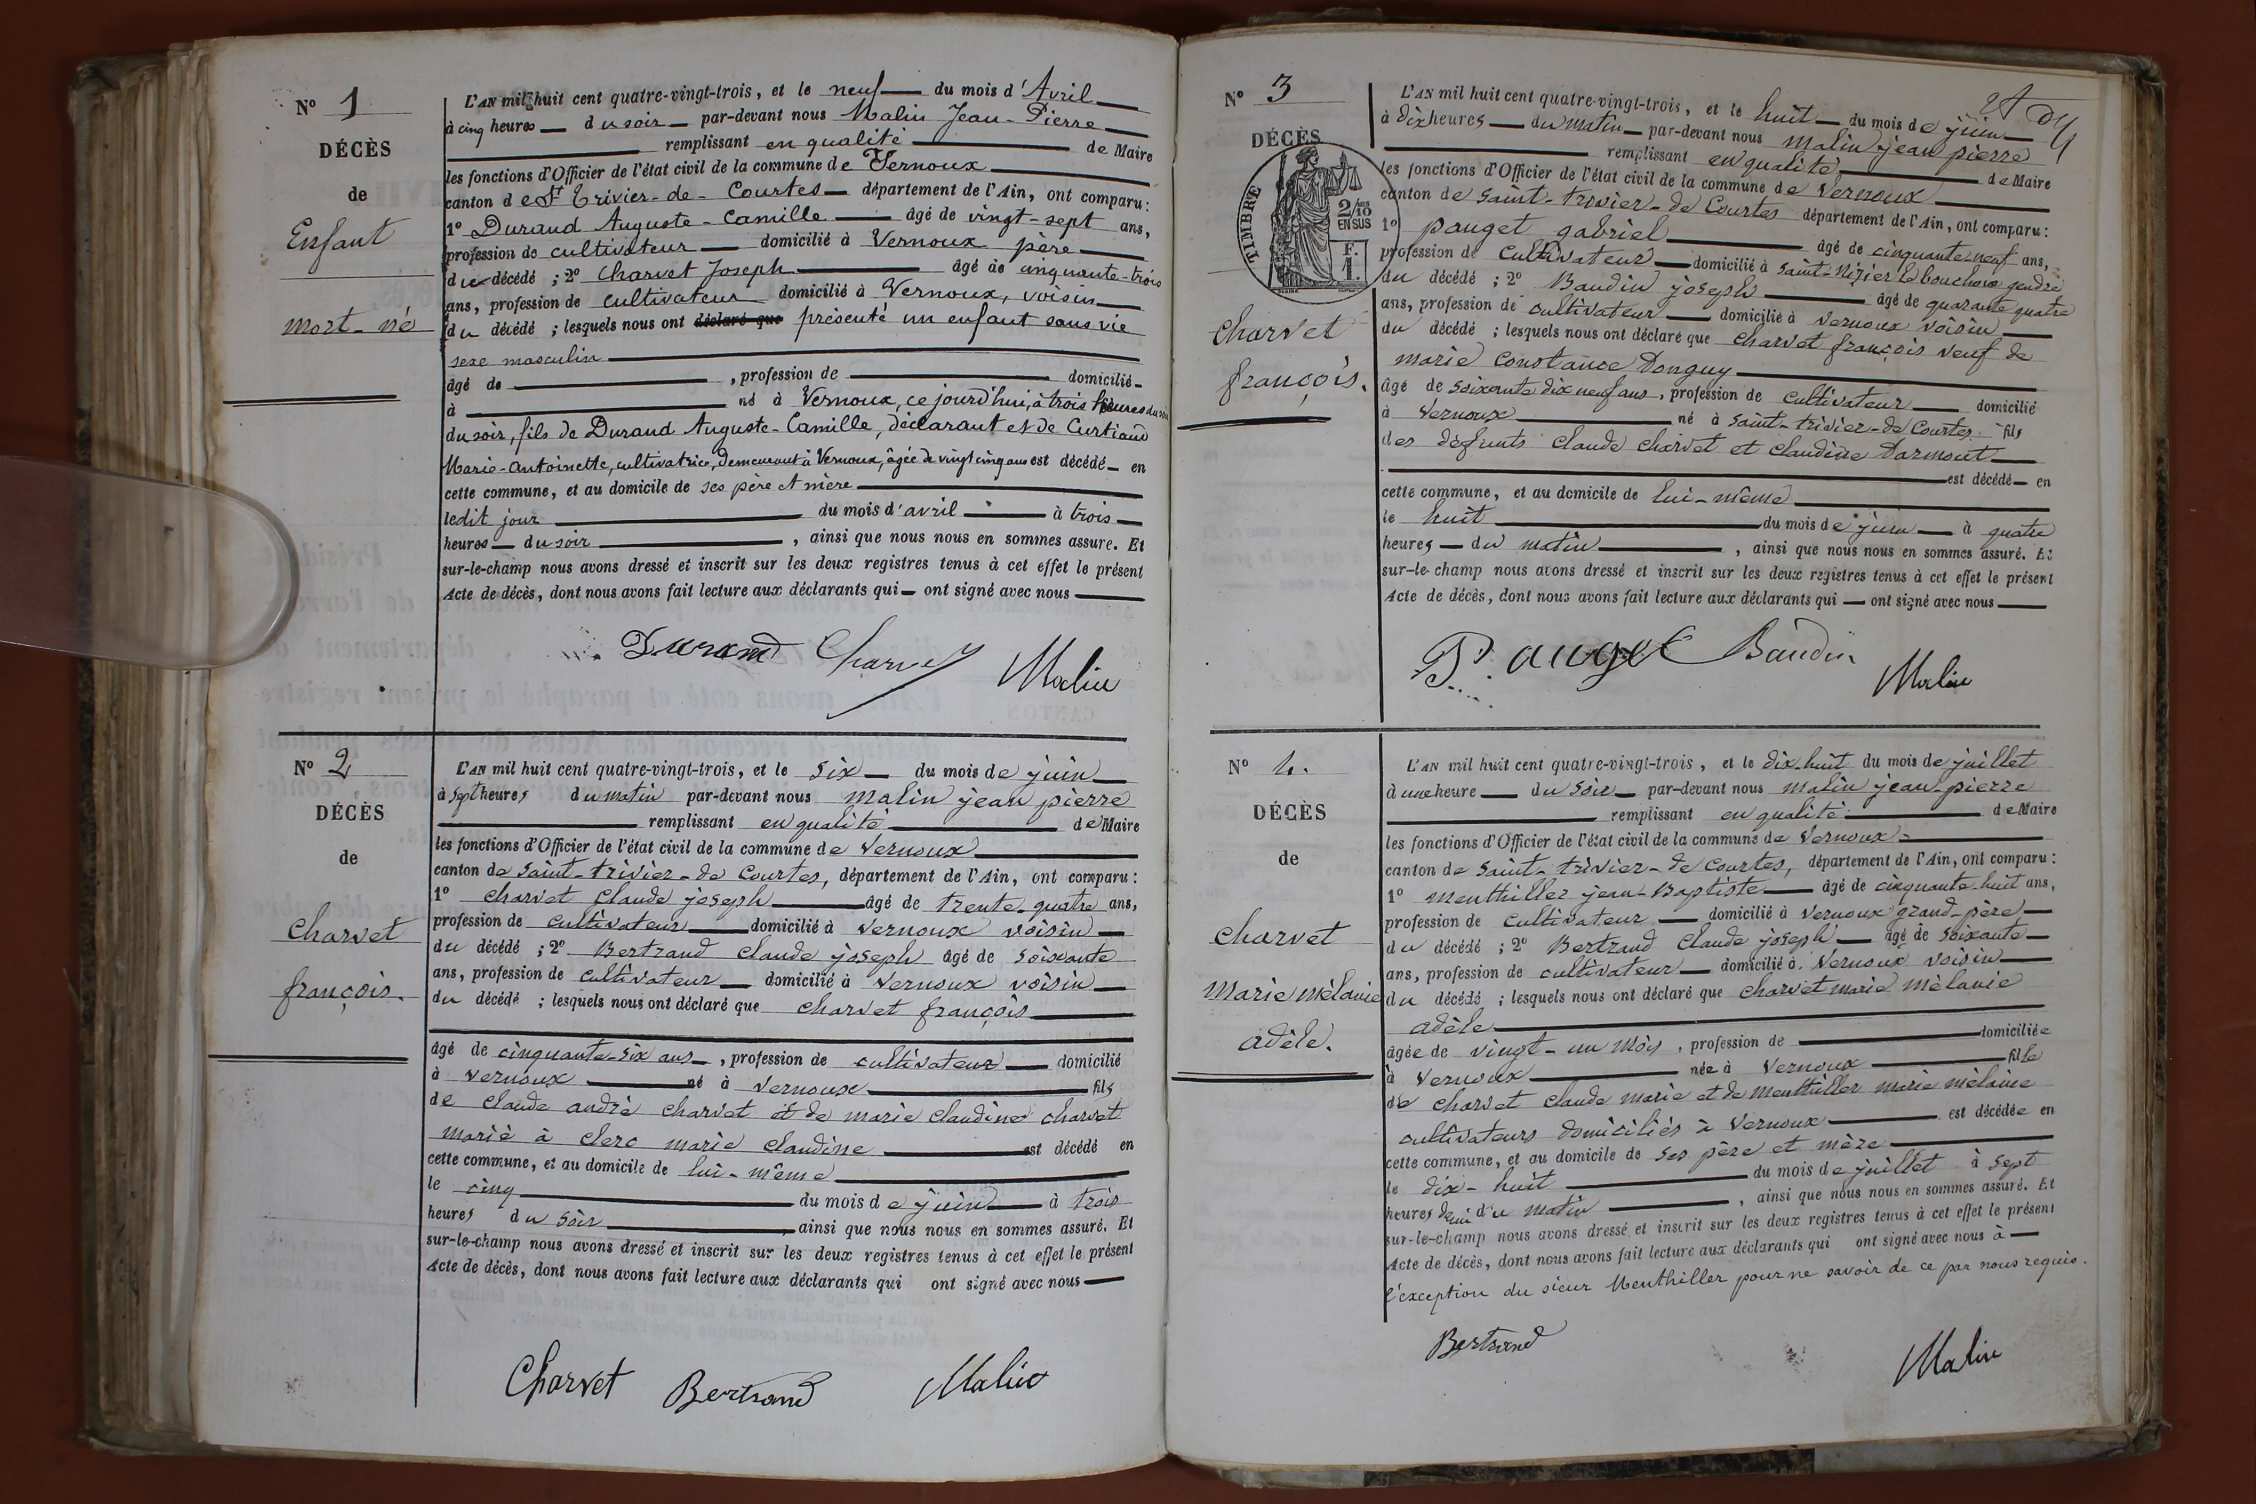 N° 1
DÉCÈS
de
Enfant
mort-né
L'AN mil huit cent quatre-vingt-trois, et le neuf du mois d'Avril
à cinq heures du soir par-devant nous Malin Jean-Pierre
remplissant en qualité de Maire
les fonctions d'Officier de l'état civil de la commune de Vernoux
canton de St Trivier-de-Courtes département de l'Ain, ont comparu:
1° Durand Auguste-Camille âgé de vingt-sept ans,
profession de cultivateur domicilié à Vernoux père
du décédé ; 2° Charvet Joseph âgé de cinquante-trois
ans, profession de cultivateur domicilié à Vernoux, voisin
du décédé ; lesquels nous ont déclaré que présenté un enfant sans vie
sexe masculin
âgé de , profession de domicilié
à né à Vernoux, ce jourd'hui, à trois heures du soir
du soir, fils de Durand Auguste-Camille, déclarant et de Curtiaud
Marie-Antoinette, cultivatrice, demeurant à Vernoux, âgée de vingt cinq ans est décédé en
cette commune, et au domicile de ses père et mère
ledit jour du mois d'avril à trois
heures du soir , ainsi que nous nous en sommes assuré. Et
sur-le-champ nous avons dressé et inscrit sur les deux registres tenus à cet effet le présent
Acte de décès, dont nous avons fait lecture aux déclarants qui ont signé avec nous
Durand Charvet Malin
N° 2
DÉCÈS
de
charvet
françois.
L'AN mil huit cent quatre-vingt-trois, et le six du mois de juin
à sept heures du matin par-devant nous malin jean pierre
remplissant en qualité de Maire
les fonctions d'Officier de l'état civil de la commune de Vernoux
canton de saint-trivier-de Courtes, département de l'Ain, ont comparu:
1° charvet claude joseph âgé de trente-quatre ans,
profession de cultivateur domicilié à Vernoux voisin
du décédé ; 2° Bertrand claude joseph âgé de soixante
ans, profession de cultivateur domicilié à Vernoux voisin
du décédé ; lesquels nous ont déclaré que charvet françois
âgé de cinquante-six ans , profession de cultivateur domicilié
à Vernoux né à Vernoux fils
de claude andré charvet et de marie claudine charvet
marié à clerc marie claudine est décédé en
cette commune, et au domicile de lui-même
le cinq du mois de juin à trois
heures du soir ainsi que nous nous en sommes assuré. Et
sur-le-champ nous avons dressé et inscrit sur les deux registres tenus à cet effet le présent
Acte de décès, dont nous avons fait lecture aux déclarants qui ont signé avec nous
Charvet Bertrand Malin
N° 3
DÉCÈS
TIMBRE
2/10
EN SUS
F.
1.
charvet
françois.
L'AN mil huit cent quatre-vingt-trois, et le huit du mois de juin
à dix heures du matin par-devant nous malin jean pierre
remplissant en qualité de Maire
les fonctions d'Officier de l'état civil de la commune de Vernoux
canton de saint-trivier-de Courtes département de l'Ain, ont comparu:
1° pauget gabriel âgé de cinquante neuf ans,
profession de cultivateur domicilié à saint-Nizier le bouchoux gendre
du décédé ; 2° Baudin joseph âgé de quarante quatre
ans, profession de cultivateur domicilié à Vernoux voisin
du décédé ; lesquels nous ont déclaré que charvet françois veuf de
marie constance Donguy
âgé de soixante dix neuf ans, profession de cultivateur domicilié
à Vernoux né à saint-trivier-de Courtes fils
des défunts claude charvet et claudine Darmont
est décédé en
cette commune, et au domicile de lui-même
le huit du mois de juin à quatre
heures du matin , ainsi que nous nous en sommes assuré. Et
sur-le-champ nous avons dressé et inscrit sur les deux registres tenus à cet effet le présent
Acte de décès, dont nous avons fait lecture aux déclarants qui ont signé avec nous
Pauget Baudin Malin
N° 4.
DÉCÈS
de
charvet
Marie mélanie
adèle.
L'AN mil huit cent quatre-vingt-trois, et le dix-huit du mois de juillet
à une heure du soir par-devant nous malin jean-pierre
remplissant en qualité de Maire
les fonctions d'Officier de l'état civil de la commune de Vernoux
canton de saint-trivier-de Courtes, département de l'Ain, ont comparu:
1° menthiller jean-Baptiste âgé de cinquante huit ans,
profession de cultivateur domicilié à Vernoux grand-père
du décédé ; 2° Bertrand claude joseph âgé de soixante
ans, profession de cultivateur domicilié à Vernoux voisin
du décédé ; lesquels nous ont déclaré que charvet marie mélanie
adèle
âgée de vingt-un mois , profession de domiciliée
à Vernoux née à Vernoux fille
de charvet claude marie et de menthiller marie mélanie
cultivateurs domiciliés à Vernoux est décédée en
cette commune, et au domicile de ses père et mère
le dix-huit du mois de juillet à sept
heures demi du matin , ainsi que nous nous en sommes assuré. Et
sur-le-champ nous avons dressé et inscrit sur les deux registres tenus à cet effet le présent
Acte de décès, dont nous avons fait lecture aux déclarants qui ont signé avec nous à
l'exception du sieur Menthiller pour ne savoir de ce par nous requis.
Bertrand Malin